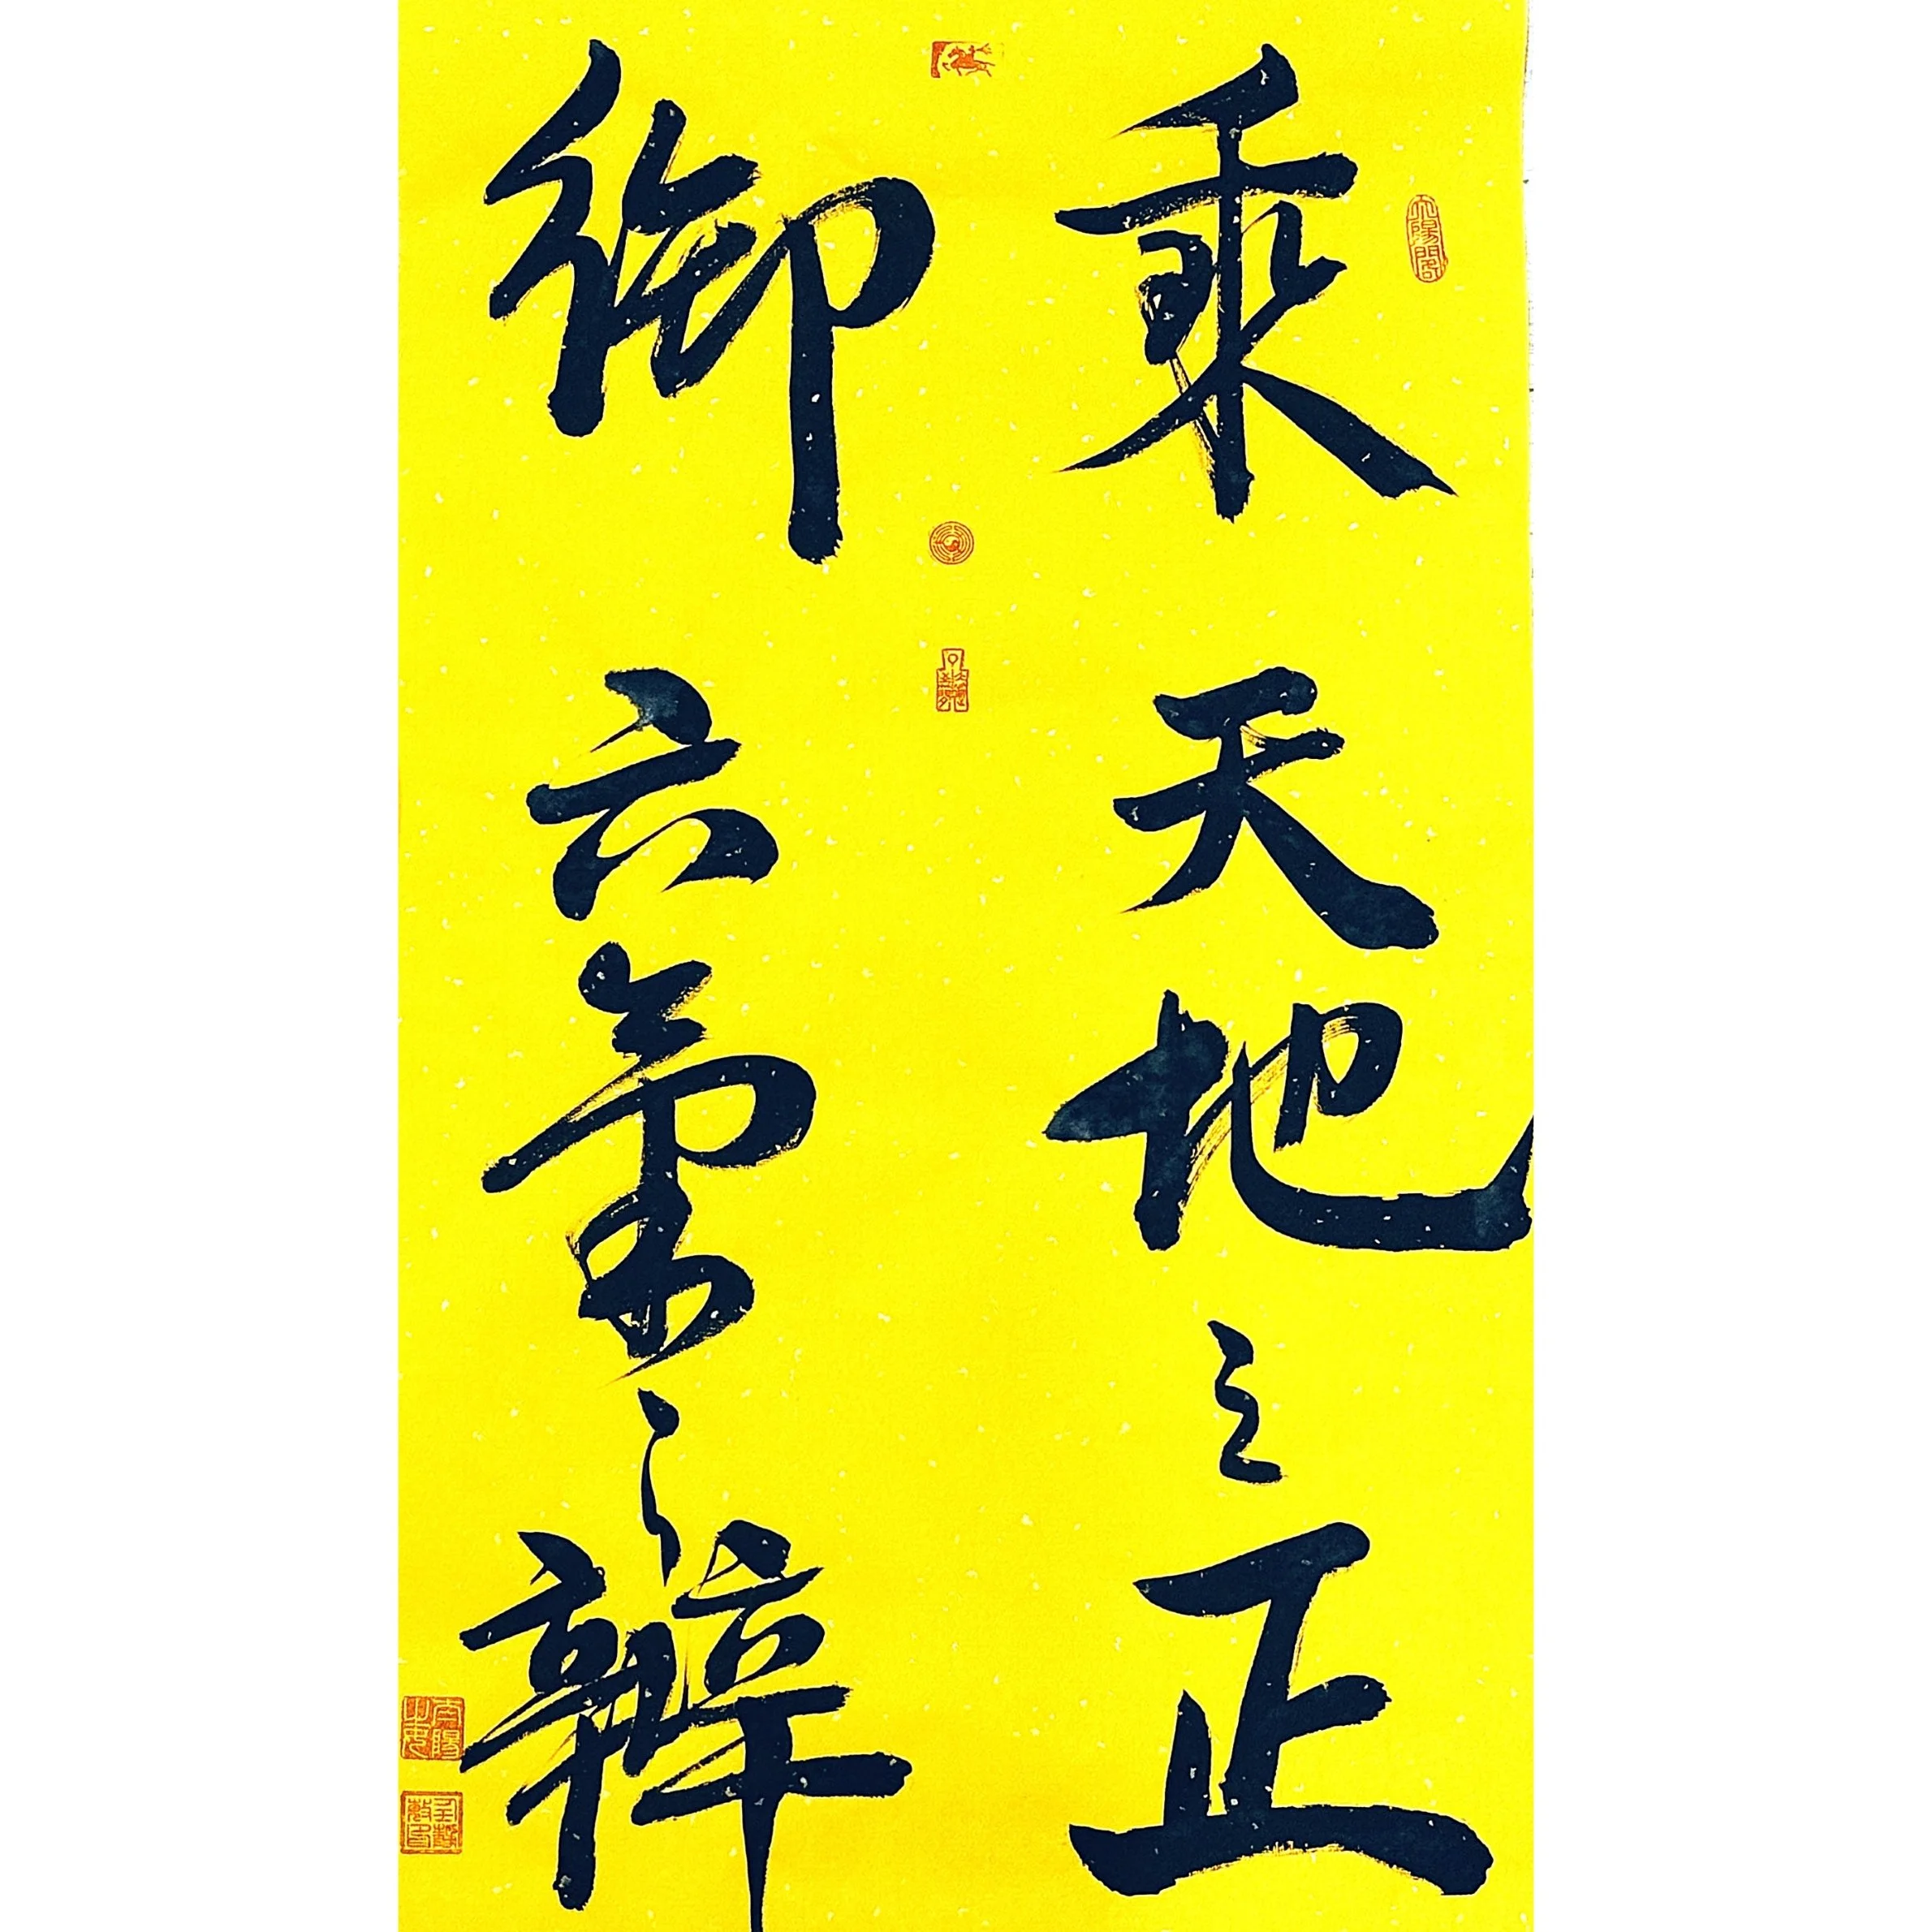 乘天地之正
御六氣之辨